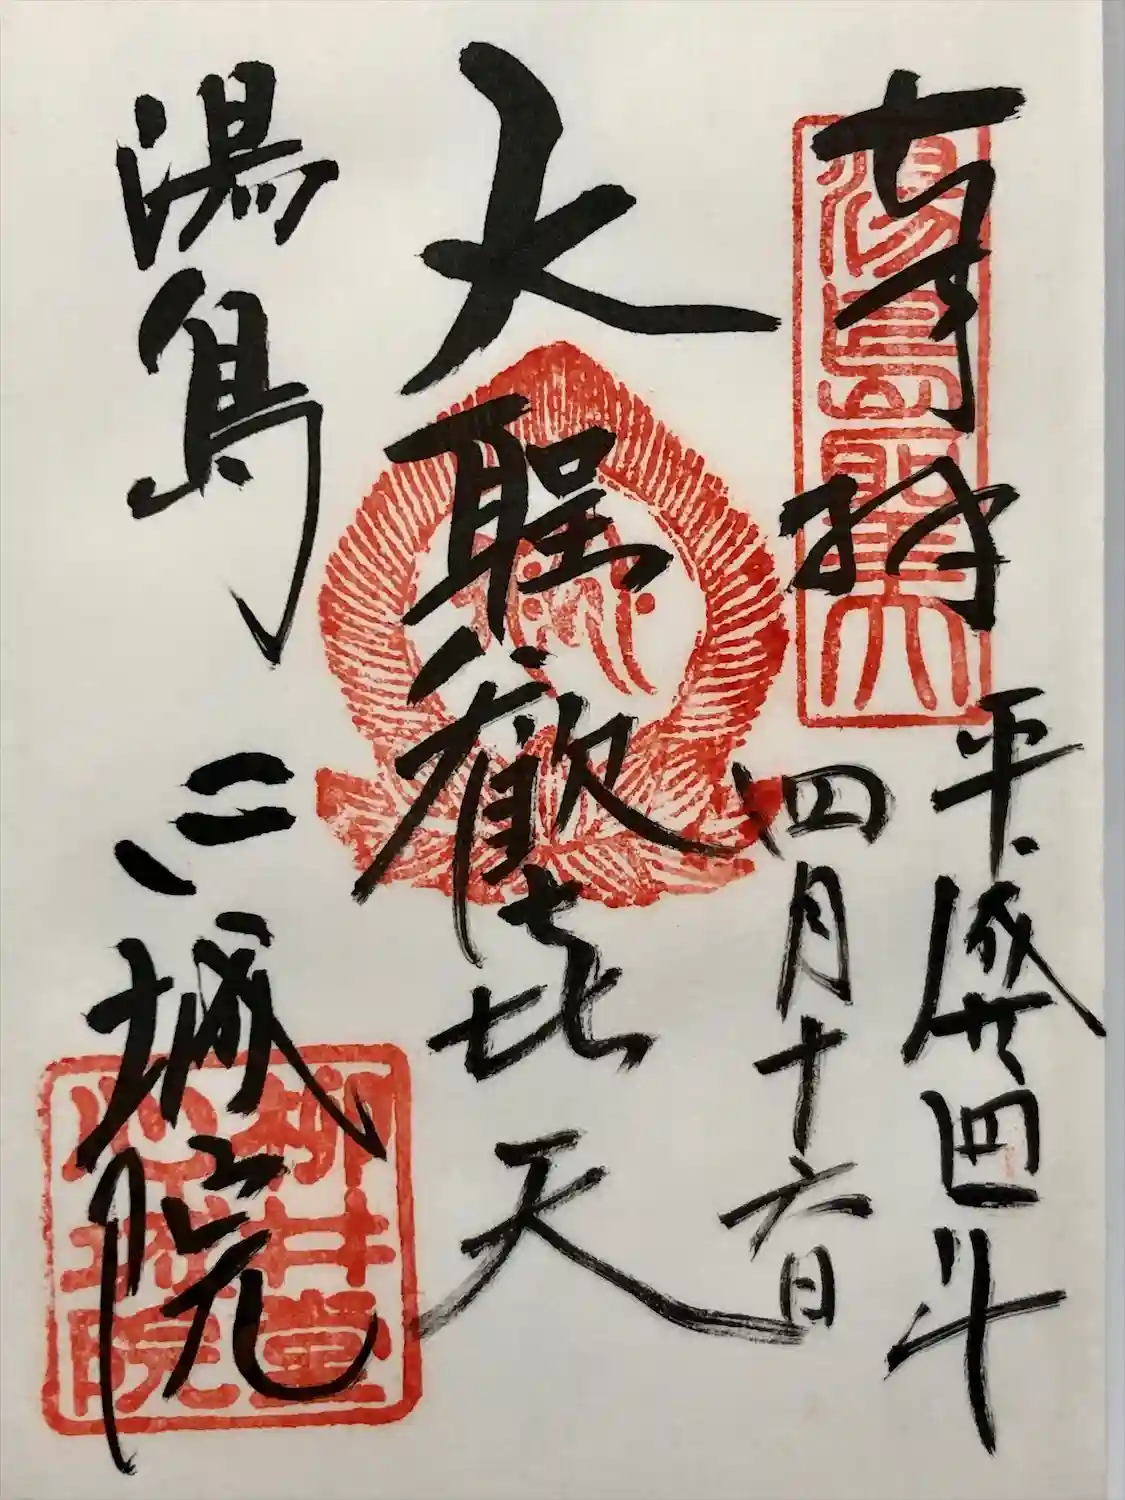 奉拝
湯島聖天
平成廿四年
四月十六日
大聖歓喜天
湯島 心城院
柳井堂
心城院